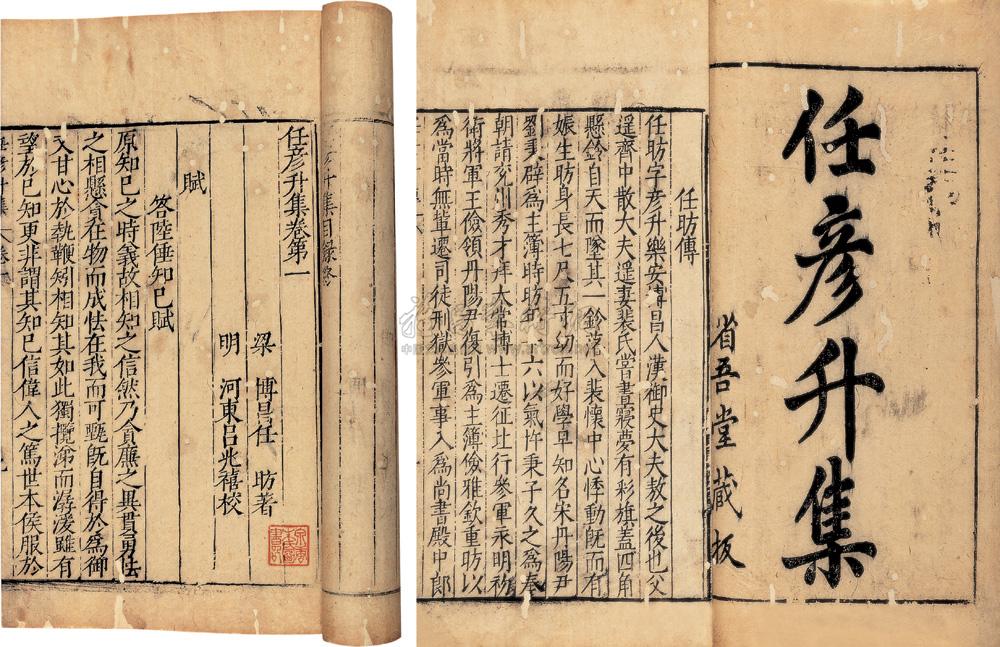 任彥升集
省吾堂藏板
任昉傳
任昉字彥升樂安博昌人漢御史大夫敖之後也父
遥齊中散大夫遥妻裴氏嘗晝寢夢有彩旗蓋四角
懸鈴自天而墜其一鈴落入裴懷中心悸動旣而有
娠生昉身長七尺五寸幼而好學早知名宋丹陽尹
劉秉辟爲主簿時昉年十六以氣忤秉子久之爲奉
朝請兗州秀才拜太常博士遷征北行參軍永明初
術將軍王儉領丹陽尹復引爲主簿儉雅欽重昉以
爲當時無輩遷司徒刑獄參軍事入爲尚書殿中郎
集目錄終
任彥升集卷第一
梁 博昌任 昉著
明 河東呂兆禧校
賦
答陸倕知己賦
原知己之時義故相知之信然乃貪廉之異貫勇怯
之相懸貪在物而成怯在我而可甄旣自得於爲御
又甘心於執鞭矧相知其如此獨攬涕而潺湲雖有
望於己知更非謂其知己信偉人之篤世本侯服於